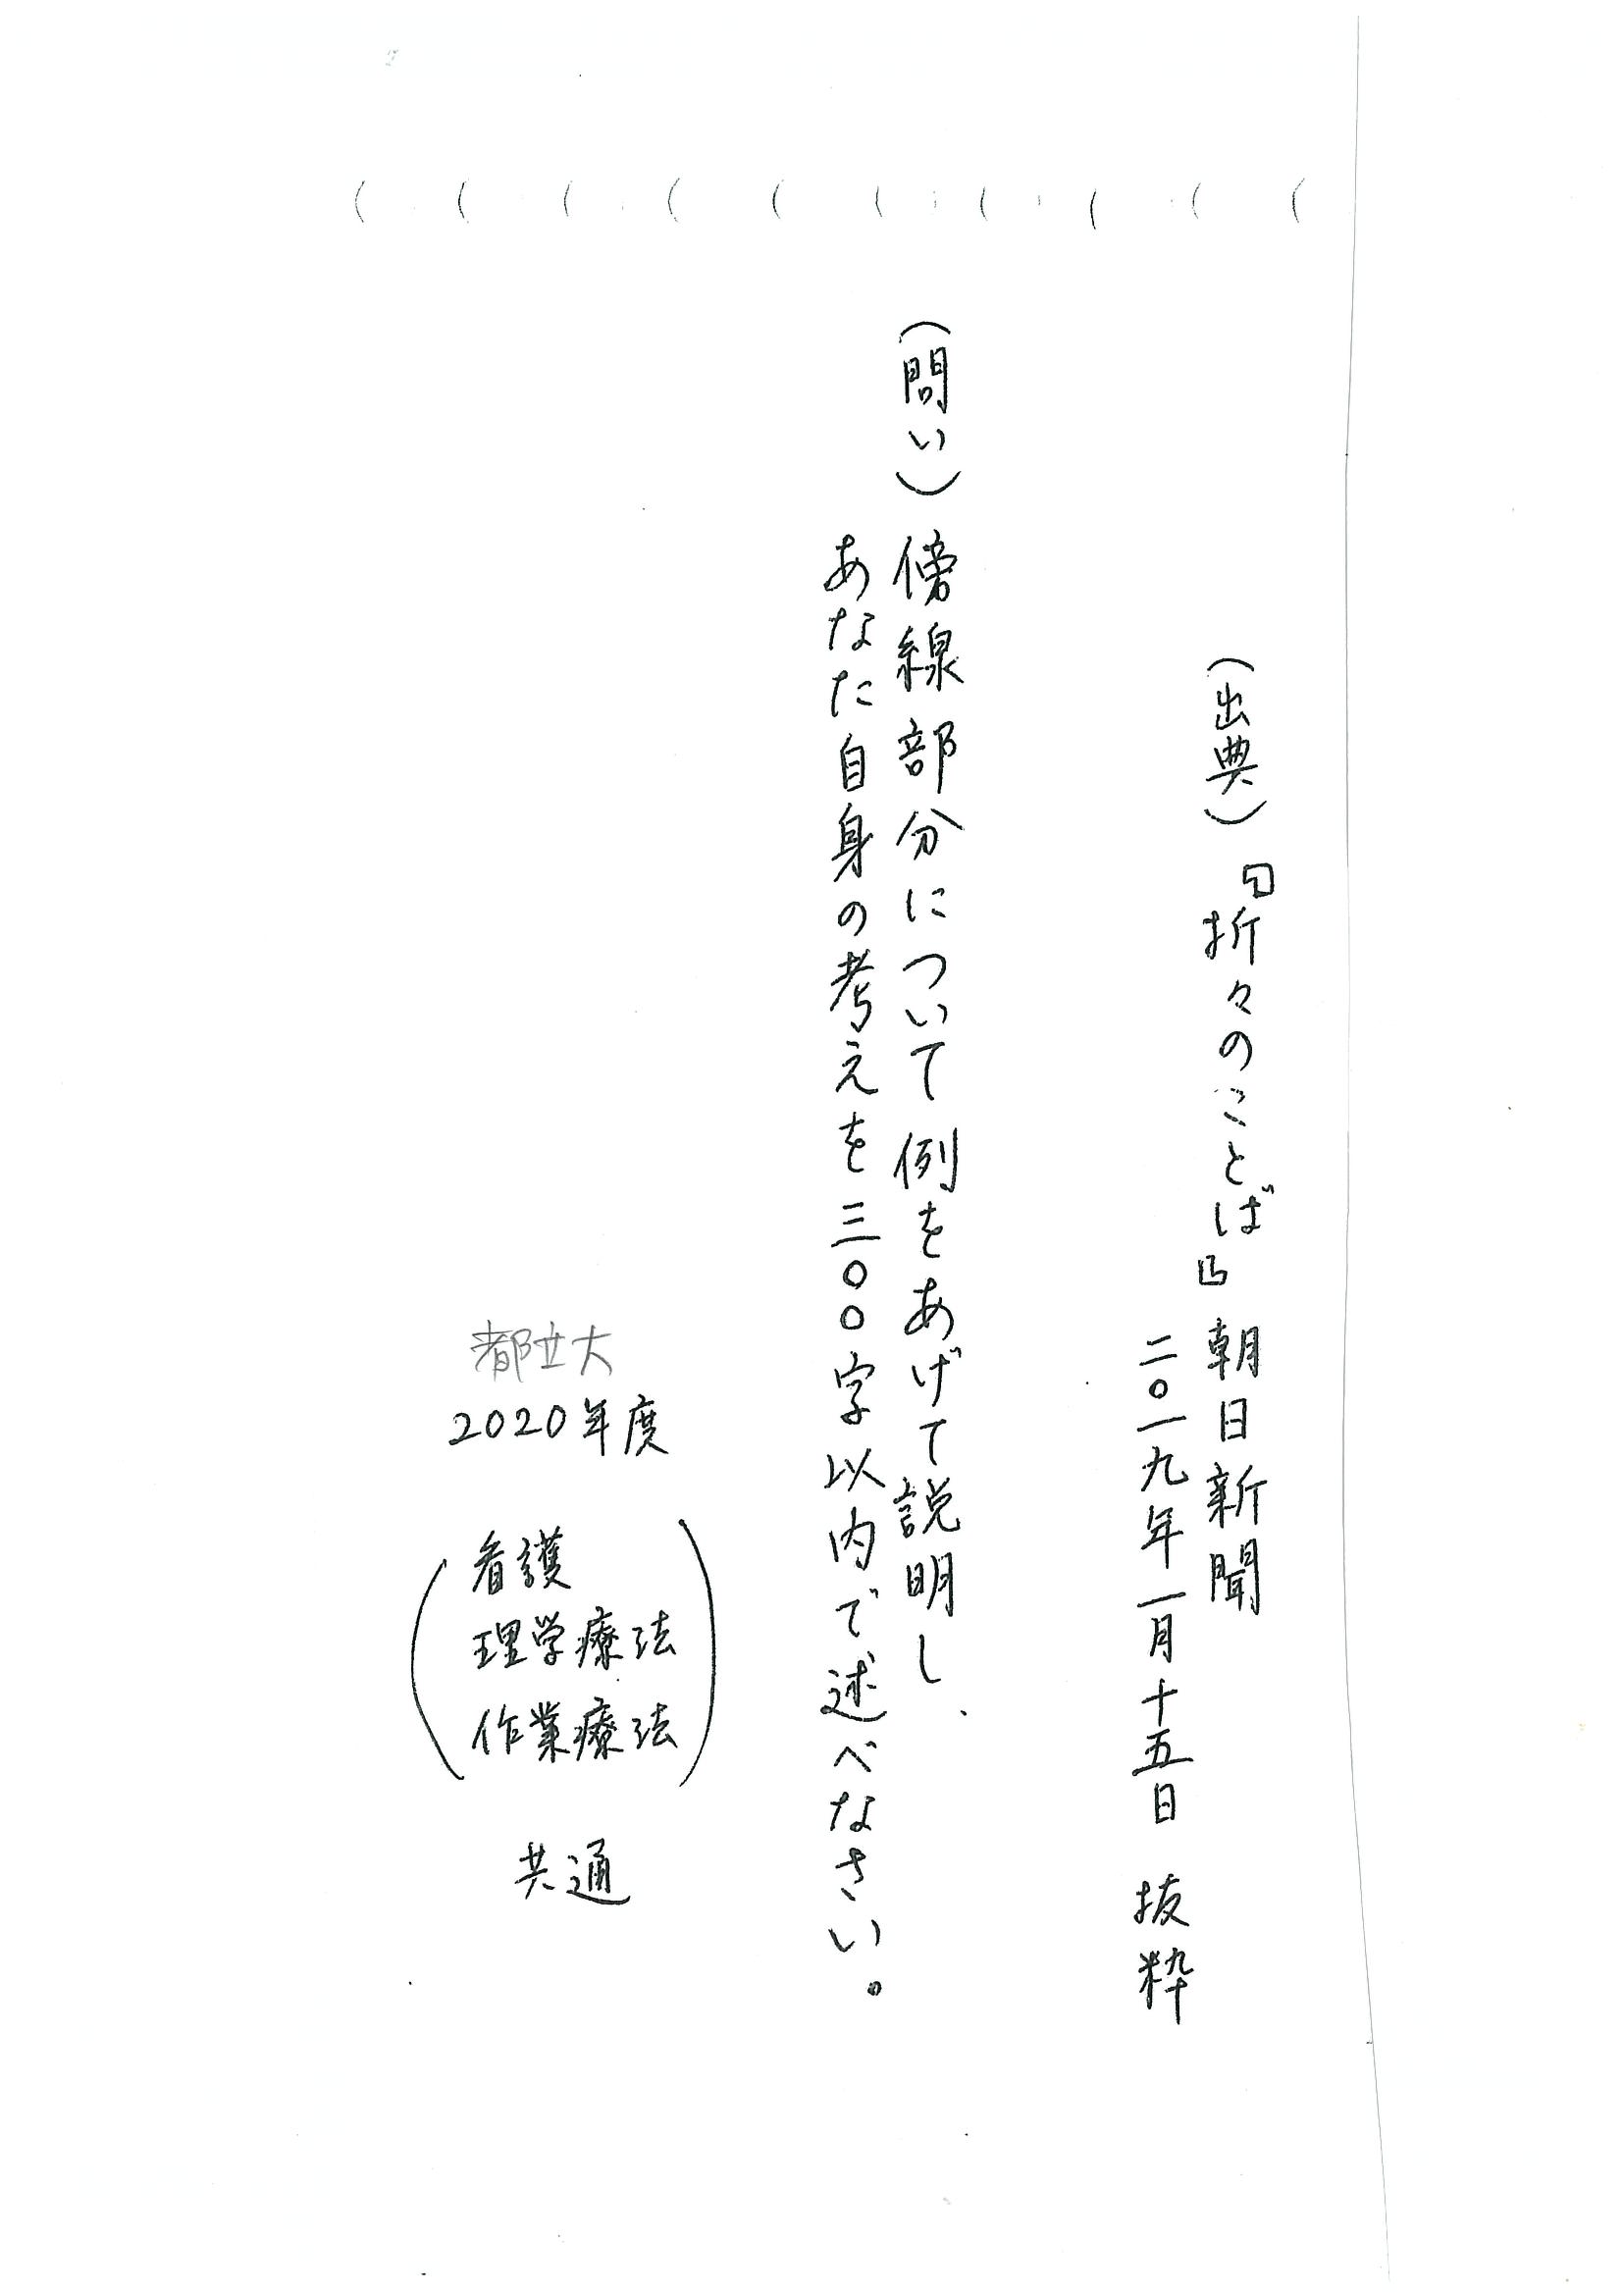 （出典）『折々のことば』朝日新聞
二〇一九年一月十五日 抜粋
（問い）傍線部分について例をあげて説明し、
あなた自身の考えを三〇〇字以内で述べなさい。
都立大
2020年度
看護
理学療法
作業療法
共通